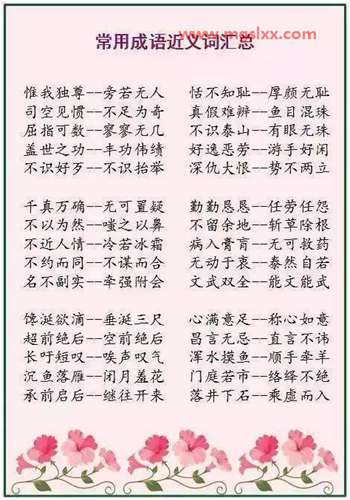 www.mcslxx.com
常用成语近义词汇总
惟我独尊--旁若无人 恬不知耻--厚颜无耻
司空见惯--不足为奇 真假难辨--鱼目混珠
屈指可数--寥寥无几 不识泰山--有眼无珠
盖世之功--丰功伟绩 好逸恶劳--游手好闲
不识好歹--不识抬举 深仇大恨--势不两立
千真万确--无可置疑 勤勤恳恳--任劳任怨
不以为然--嗤之以鼻 不留余地--斩草除根
不近人情--冷若冰霜 病入膏肓--无可救药
不约而同--不谋而合 无动于衷--泰然自若
名不副实--牵强附会 文武双全--能文能武
馋涎欲滴--垂涎三尺 心满意足--称心如意
超前绝后--空前绝后 昌言无忌--直言不讳
长吁短叹--唉声叹气 浑水摸鱼--顺手牵羊
沉鱼落雁--闭月羞花 门庭若市--络绎不绝
承前启后--继往开来 落井下石--乘虚而入